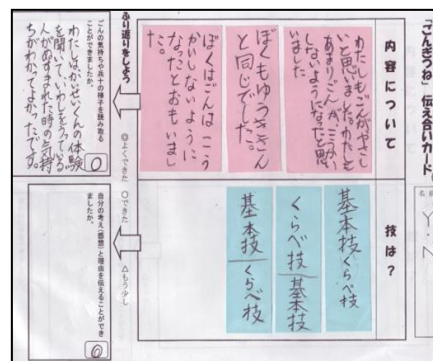 「ごんぎつね」 伝え合いカード。
Y.N
内容について
わたしもごんがやさし
いと思いました。わたしも
あまりごんが、こうかい
しないようになったと思
いました
ぼくもゆうきさん
と同じでした。
ぼくはごんはこう
かいしないように
なったとおもいまし
た。
技は?
基本技くらべ技
くらべ技 基本技
基本技 くらべ技
ふり返りをしよう ◎よくできた ○できた △もう少し
ごんの気持ちや兵十の様子を読み取る
ことができましたか。
◎
の体験
を聞いて、いわしをうっている
人がぬすまれた時の気持
ちがわかってよかったです。
自分の考え(感想)と理由を伝えることができ
ましたか。
◎